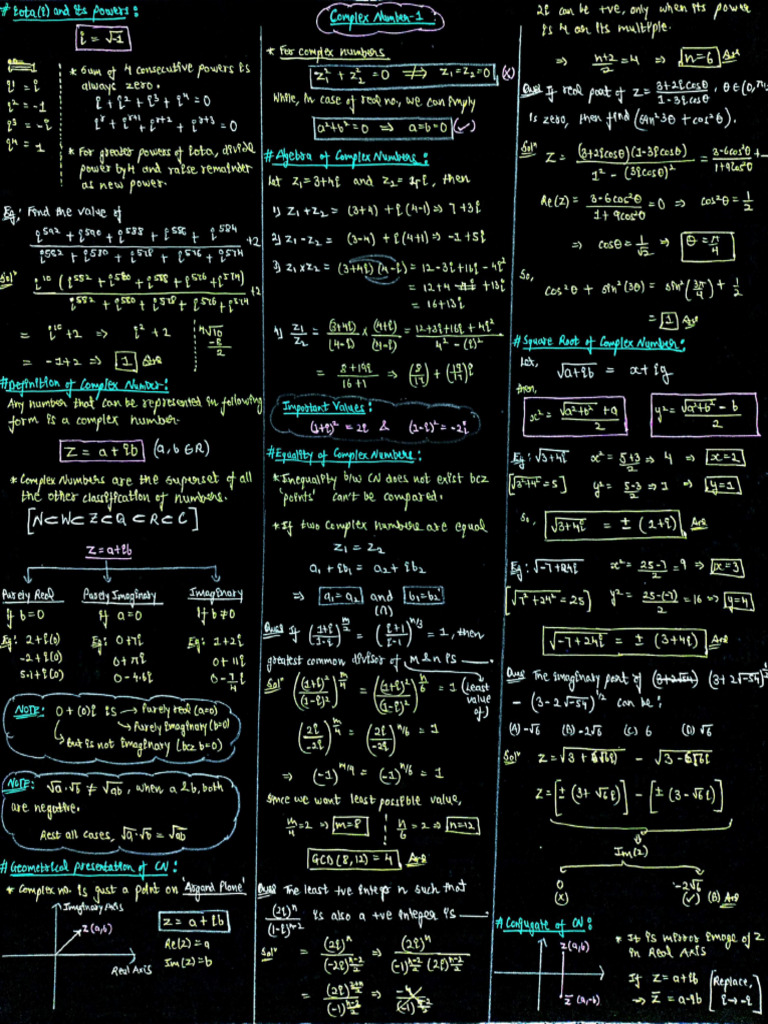 Complex Number-1
# Iota(i) and its Powers:
i = √-1
i¹ = i
i² = -1
i³ = -i
i⁴ = 1
* Sum of 4 consecutive powers is
always zero.
i + i² + i³ + i⁴ = 0
iʳ + iʳ⁺¹ + iʳ⁺² + iʳ⁺³ = 0
* For greater powers of iota, divide
power by 4 and raise remainder
as new power.
Eg; Find the value of
(i⁵⁹² + i⁵⁹⁰ + i⁵⁸⁸ + i⁵⁸⁶ + i⁵⁸⁴)/(i⁵⁸² + i⁵⁸⁰ + i⁵⁷⁸ + i⁵⁷⁶ + i⁵⁷⁴) + 2
Solⁿ i¹⁰ (i⁵⁸² + i⁵⁸⁰ + i⁵⁷⁸ + i⁵⁷⁶ + i⁵⁷⁴)/(i⁵⁸² + i⁵⁸⁰ + i⁵⁷⁸ + i⁵⁷⁶ + i⁵⁷⁴) + 2
= i¹⁰ + 2 ⇒ i² + 2
= -1 + 2 ⇒ 1 Ans
4√10
-8
2
# Definition of Complex Number:
Any number that can be represented in following
form is a complex number.
Z = a + ib (a, b ∈ R)
* Complex Numbers are the superset of all
the other classification of numbers.
[N⊂W⊂Z⊂Q⊂R⊂C]
Z = a + ib
Purely Real Purely Imaginary Imaginary
if b=0 if a=0 if b≠0
Eg: 2+i(0) Eg: 0+7i Eg: 1+2i
-2+i(0) 0+πi 0+11i
5.1+i(0) 0-4.6i 0-7/4 i
NOTE: 0+(0)i is → Purely real (a=0)
→ Purely Imaginary (b=0)
→ But is not Imaginary (bcz b=0)
NOTE: √a·√b ≠ √ab, when a & b, both
are negative.
Rest all cases, √a·√b = √ab
# Geometrical presentation of CN:
* Complex no. is just a point on 'Asgand Plane'
Imaginary Axis
Z(a,b)
Real Axis
Z = a + ib
Re(z) = a
Im(z) = b
* For complex numbers
Z₁² + Z₂² = 0 ⇏ Z₁=Z₂=0 (x)
While, in case of real no, we can imply
a²+b²=0 ⇒ a=b=0 (✓)
# Algebra of Complex Numbers:
Let Z₁=3+4i and Z₂=4-i, then
1) Z₁+Z₂ = (3+4) + i(4-1) ⇒ 7+3i
2) Z₁-Z₂ = (3-4) + i(4+1) ⇒ -1+5i
3) Z₁×Z₂ = (3+4i)(4-i) = 12-3i+16i-4i²
= 12+4 +13i
= 16+13i
4) Z₁/Z₂ = (3+4i)/(4-i) × (4+i)/(4-i) = (12+3i+16i+4i²)/(4²-(i)²)
= (8+19i)/(16+1) ⇒ (8/17) + (19/17)i
Important Values:
(1+i)² = 2i & (1-i)² = -2i
# Equality of Complex Numbers:
* Inequality b/w CN does not exist bcz
'points' can't be compared.
* If two complex numbers are equal
Z₁ = Z₂
a₁+ib₁ = a₂+ib₂
⇒ a₁=a₂ and b₁=b₂
(∩)
Ques If ((1+i)/(1-i))^(m/2) = ((i+1)/(i-1))^(n/3) = 1, then
greatest common divisor of m & n is ____.
Solⁿ ((1+i)²/(1-i)²)^(m/4) = ((1+i)²/(1-i)²)^(n/6) = 1 (Least
value
of)
(2i/-2i)^(m/4) = (2i/-2i)^(n/6) = 1
⇒ (-1)^(m/4) = (-1)^(n/6) = 1
Since we want least possible value,
m/4=2 ⇒ m=8 n/6=2 ⇒ n=12
GCD(8,12) = 4 Ans
Ques The least +ve integer n such that
(2i)ⁿ/(1-i)ⁿ⁻² is also a +ve integer is ____
Solⁿ = (2i)ⁿ/(-2i)^((n-2)/2) ⇒ (2i)ⁿ/((-1)^((n-2)/2) (2i)^((n-2)/2))
= (2i)^((n+2)/2)/(-1)^((n-2)/2)
2i can be +ve, only when its power
is 4 or its multiple.
⇒ (n+2)/2 = 4 ⇒ n=6 Ans
Ques If real part of Z = (3+2i cosθ)/(1-3i cosθ), θ∈(0,
is zero, then find (sin²3θ + cos²θ).
Solⁿ Z = (3+2i cosθ)(1-3i cosθ)/(1²-(3i cosθ)²) = (3-6cos²θ+/(1+9cos²θ
Re(z) = (3-6cos²θ)/(1+9cos²θ) = 0 ⇒ cos²θ = 1/2
⇒ cosθ = 1/√2 ⇒ θ = π/4
So,
cos²θ + sin²(3θ) = sin²(3π/4) + 1/2
= 1 Ans
# Square Root of Complex Number:
Let, √(a+ib) = x + iy
then,
x² = (√(a²+b²)+a)/2 y² = (√(a²+b²)-b)/2
Eg: √(3+4i) x² = (5+3)/2 ⇒ 4 ⇒ x=2
[√(3²+4²)=5] y² = (5-3)/2 ⇒ 1 ⇒ y=1
So, √(3+4i) = ±(2+i) Ans
Eg: √(-7+24i) x² = (25-7)/2 = 9 ⇒ x=3
[√(7²+24²)=25] y² = (25-(-7))/2 = 16 ⇒ y=4
√(-7+24i) = ±(3+4i) Ans
Ques The imaginary part of (3+2√-54)^(1/2)
- (3-2√-54)^(1/2) can be:
(A) -√6 (B) -2√6 (C) 6 (D) √6
Solⁿ Z = √(3+6√6i) - √(3-6√6i)
Z = [±(3+√6i)] - [±(3-√6i)]
Im(z)
0 -2√6
(x) (✓) (B) Ans
# Conjugate of CN:
Z(a,b)
Z̄(a,-b)
* It is mirror image of Z
in Real Axis
If Z = a+ib [Replace,
⇒ Z̄ = a-ib i→-i]